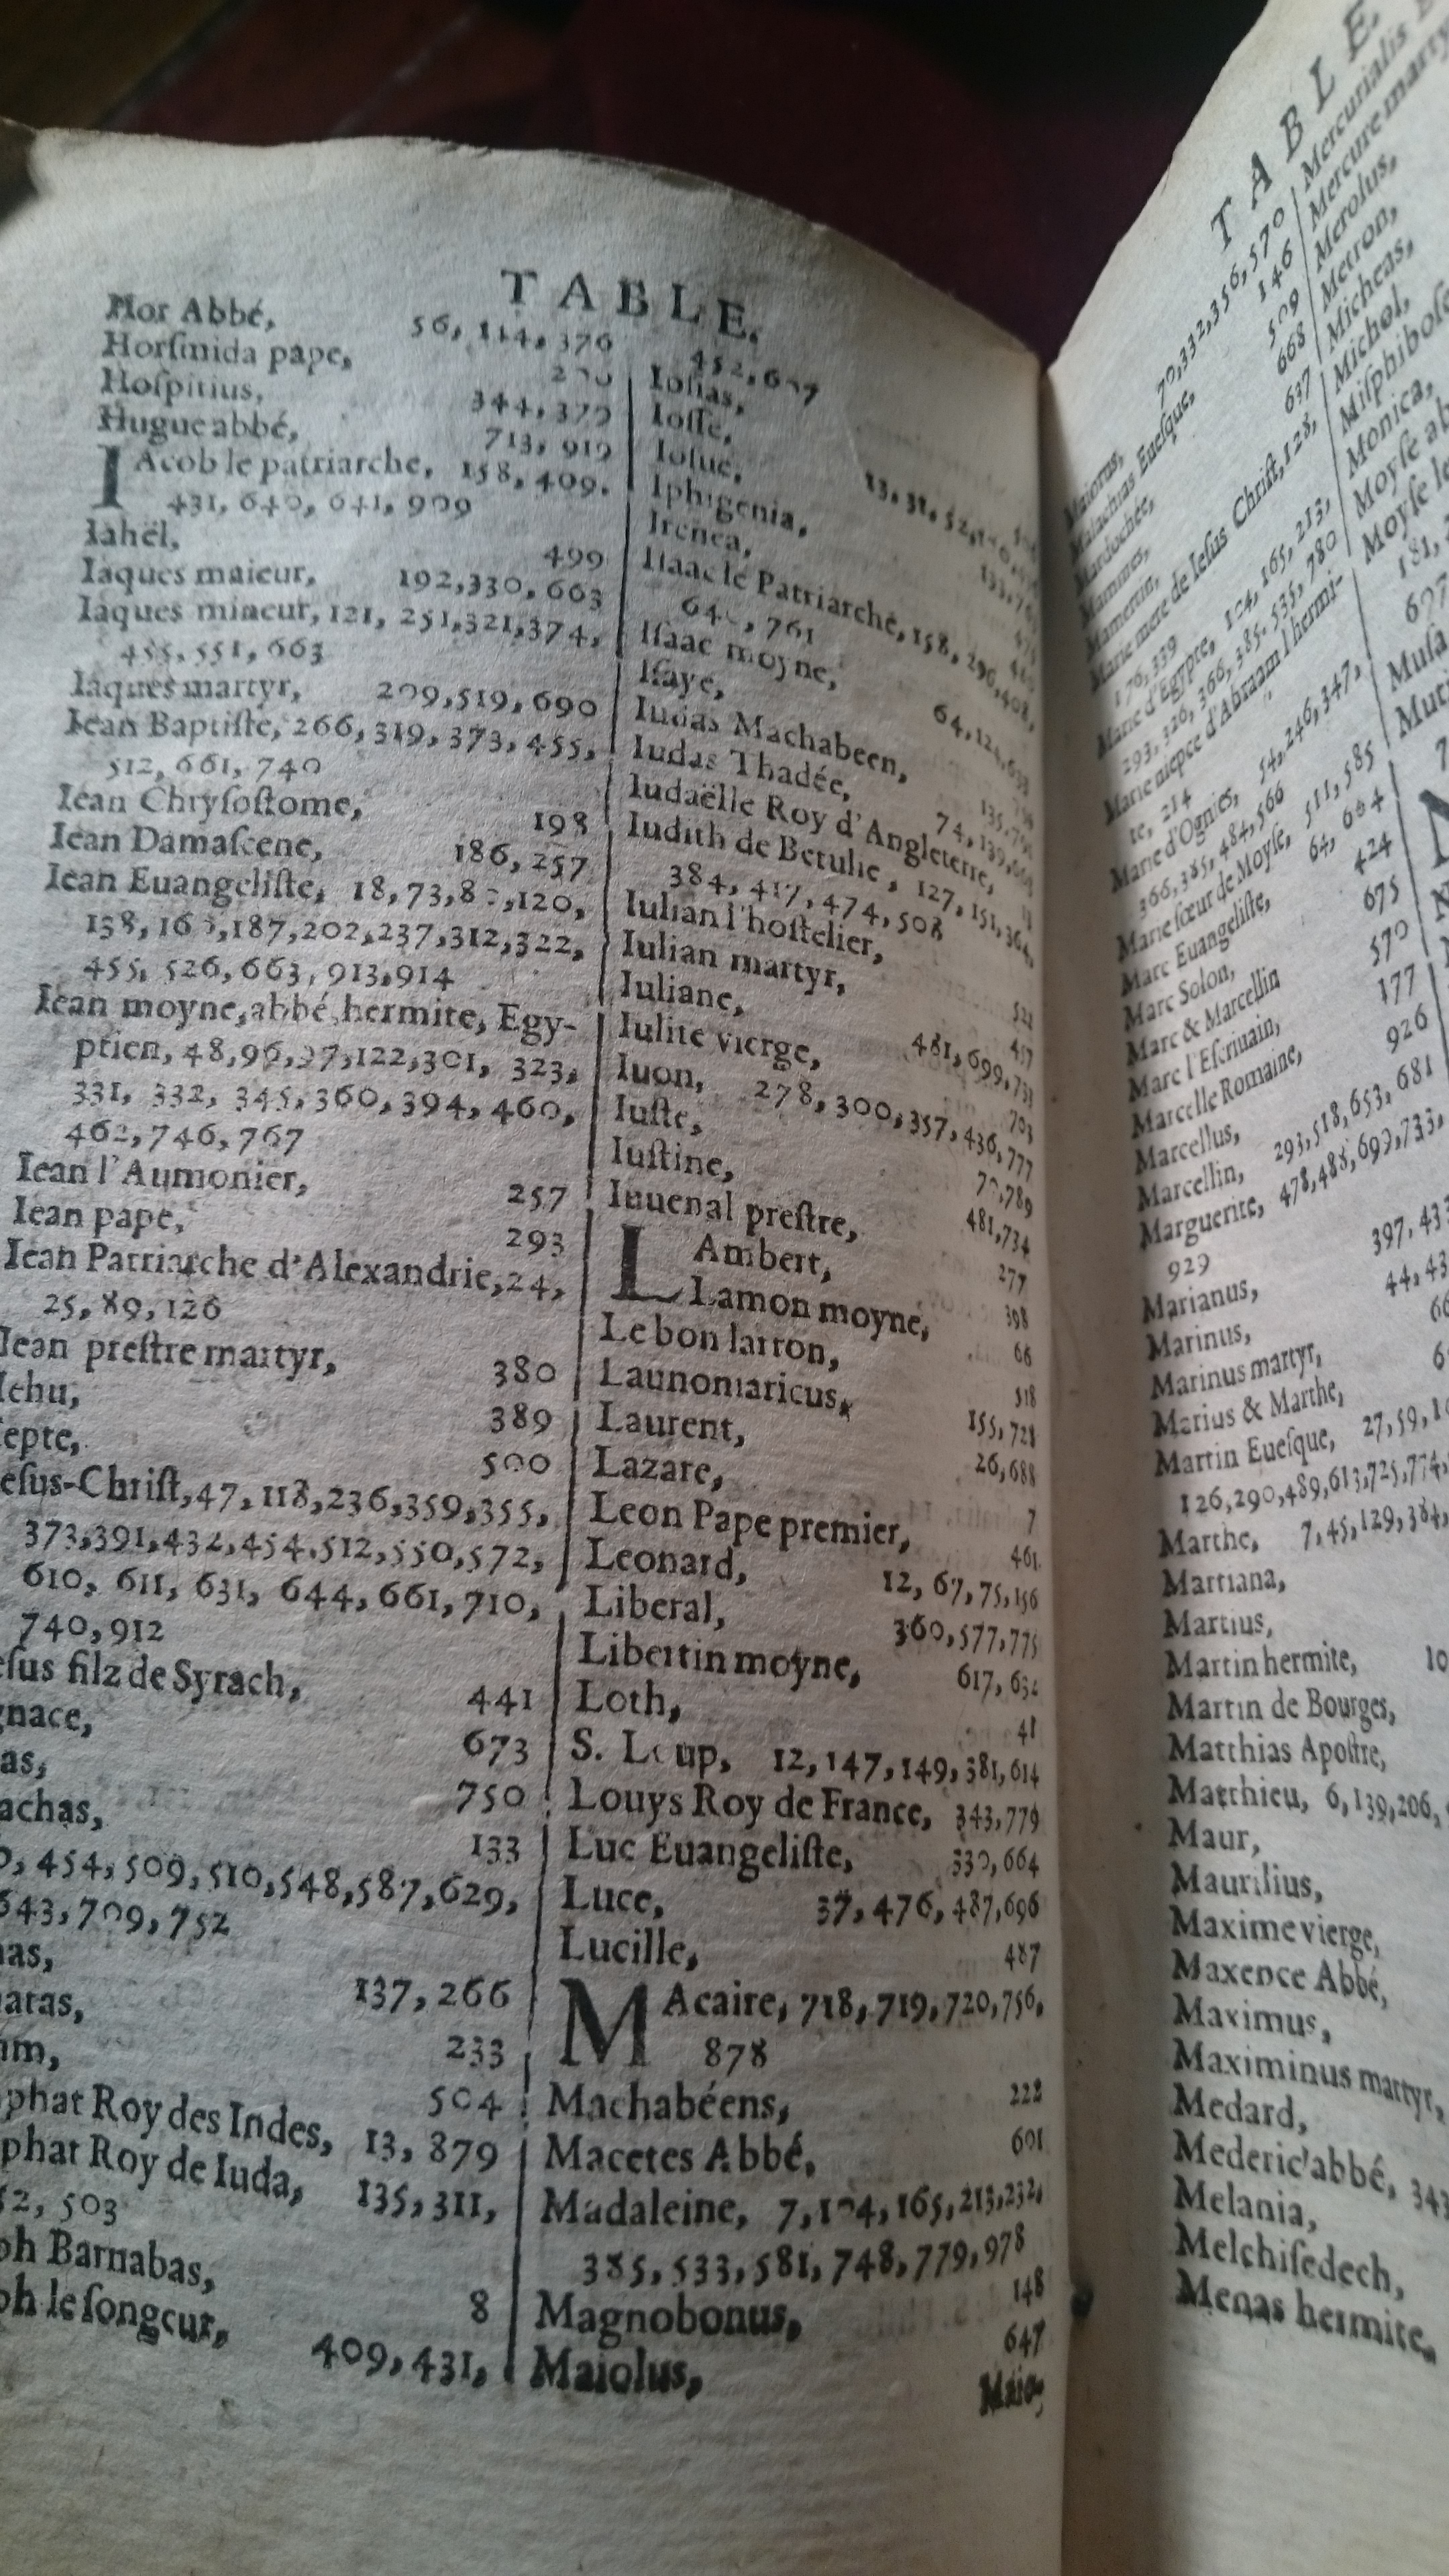 TABLE.
Hor Abbé, 56, 114, 376
Horſmida pape,
Hoſpitius, 344, 379
Hugue abbé, 713, 919
IAcob le patriarche, 158, 409.
431, 640, 641, 909
Iahël, 499
Iaques maieur, 192,330,663
Iaques mineur, 121, 251,321,374,
455,551,663
Iaques martyr, 209,519,690
Iean Baptiſte, 266,319,373,455,
512,661,740
Iean Chryſoſtome, 198
Iean Damaſcene, 186,257
Iean Euangeliſte, 18,73,120,
138,187,202,237,312,322,
455, 526,663,913,914
Iean moyne,abbé,hermite, Egy-
ptien, 48,96,97,122,301, 323,
331, 332, 345,360,394,460,
462,746,767
Iean l'Aumonier, 257
Iean pape, 293
Iean Patriarche d'Alexandrie,24,
25,89,126
Iean preſtre martyr, 380
Iehu, 389
epte, 500
eſus-Chriſt,47,118,236,359,355,
373,391,432,454.512,550,572,
610, 611, 631, 644,661,710,
740,912
eſus filz de Syrach, 441
gnace, 673
as, 750
achas, 133
454,509,510,548,587,629,
643,709,752
as, 137,266
aras, 233
m, 504
phat Roy des Indes, 13,879
phat Roy de Iuda, 135,311,
52,503
ph Barnabas, 8
ph le ſongeur, 409,431,
452,607
Ioſias,
Ioſſe,
Ioſue,
Iphigenia,
Irenea,
Iſaac le Patriarche, 158, 296,408,
761
Iſaac moyne,
Iſaye,
Iudas Machabeen,
Iudas Thadée,
Iudaëlle Roy d'Angleterre,
Iudith de Betulie, 127, 151,364,
384, 417, 474, 508
Iulian l'hoſtelier,
Iulian martyr,
Iuliane, 481,699,731
Iulite vierge, 703
Iuon, 278,300,357,436,777
Iuſte, 70,789
Iuſtine, 481,734
Iuuenal preſtre, 277
LAmbert, 398
Lamon moyne, 66
Le bon larron, 518
Launomaricus, 155,728
Laurent, 26,688
Lazare, 7
Leon Pape premier, 461
Leonard, 12,67,75,156
Liberal, 360,577,775
Libertin moyne, 617,632
Loth, 41
S. Loup, 12,147,149,381,614
Louys Roy de France, 343,779
Luc Euangeliſte, 330,664
Luce, 37,476,487,696
Lucille, 487
MAcaire, 718,719,720,756,
878
Machabéens, 222
Macetes Abbé, 601
Madaleine, 7,104,165,213,232,
385,533,581,748,779,978
Magnobonus, 148
Maiolus, 647
Maio
TABLE.
Maiorus, 70,332,356,570
Malachias Eueſque, 146
Mardochée, 509
Mammes, 668
Mamertin, 637
Marie mere de Ieſus Chriſt,128,
176,339
Marie d'Egypte, 104, 165, 213,
293, 326, 366, 385, 535, 780
Marie niepce d'Abraam l'hermi-
te, 214
Marie d'Ognies, 54,246,347,
366,385,484,566
Marie ſœur de Moyſe, 511,585
Marc Euangeliſte, 64, 664
Marc Solon, 424
Marc & Marcellin 675
Marc l'Eſcriuain, 570
Marcelle Romaine, 177
Marcellus, 926
Marcellin, 293,518,653,681
Marguerite, 478,488,693,733,
929
Marianus,
Marinus,
Marinus martyr,
Marius & Marthe,
Martin Eueſque,
126,290,489,613,725,774,
Marthe, 7,45,129,384,
Martiana,
Martius,
Martin hermite,
Martin de Bourges,
Matthias Apoſtre,
Matthieu, 6,139,206,
Maur,
Maurilius,
Maxime vierge,
Maxence Abbé,
Maximus,
Maximinus martyr,
Medard,
Mederic abbé,
Melania,
Melchiſedech,
Menas hermite,
Mercurialis
Mercure marty
Merolus,
Metron,
Micheas,
Michol,
Miſphiboſ
Monica,
Moyſe ab
Moyſe le